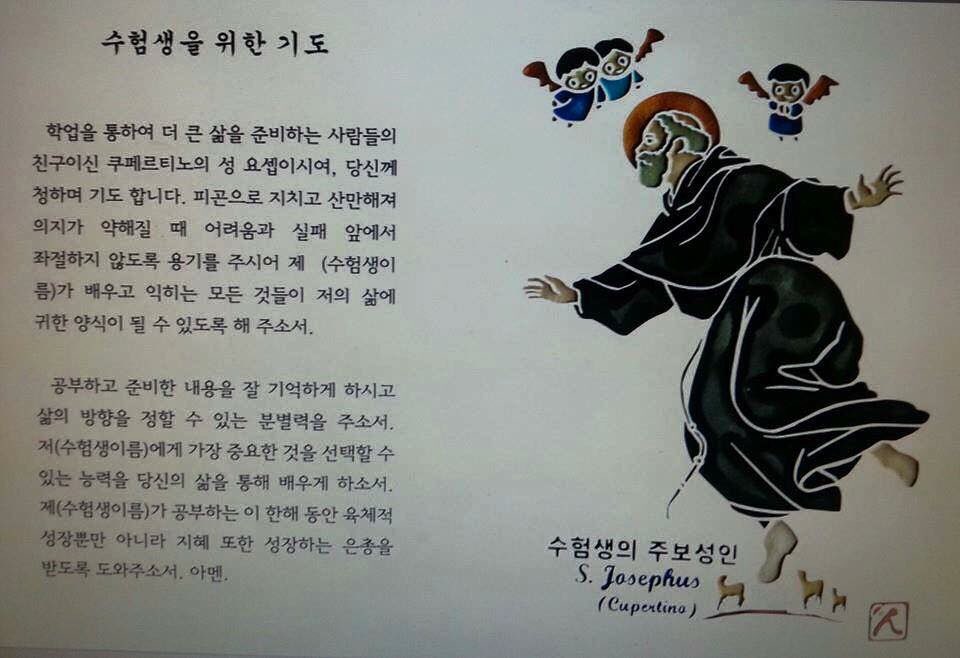 수험생을 위한 기도
학업을 통하여 더 큰 삶을 준비하는 사람들의
친구이신 쿠페르티노의 성 요셉이시여, 당신께
청하며 기도 합니다. 피곤으로 지치고 산만해져
의지가 약해질 때 어려움과 실패 앞에서
좌절하지 않도록 용기를 주시어 제 (수험생이
름)가 배우고 익히는 모든 것들이 저의 삶에
귀한 양식이 될 수 있도록 해 주소서.
공부하고 준비한 내용을 잘 기억하게 하시고
삶의 방향을 정할 수 있는 분별력을 주소서.
저(수험생이름)에게 가장 중요한 것을 선택할 수
있는 능력을 당신의 삶을 통해 배우게 하소서.
제(수험생이름)가 공부하는 이 한해 동안 육체적
성장뿐만 아니라 지혜 또한 성장하는 은총을
받도록 도와주소서. 아멘.
수험생의 주보성인
S. Josephus
(Cupertino)